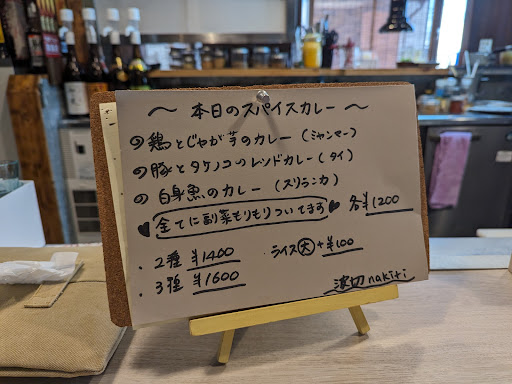 〜 本日のスパイスカレー 〜
① 鶏とじゃが芋のカレー(ミャンマー)
② 豚とタケノコのレッドカレー(タイ)
③ 白身魚のカレー(スリランカ)
♥ 全てに副菜もりもりついてます ♥ 各¥1200
・2種 ¥1400 ・ライス大 +¥100
・3種 ¥1600
nakiri